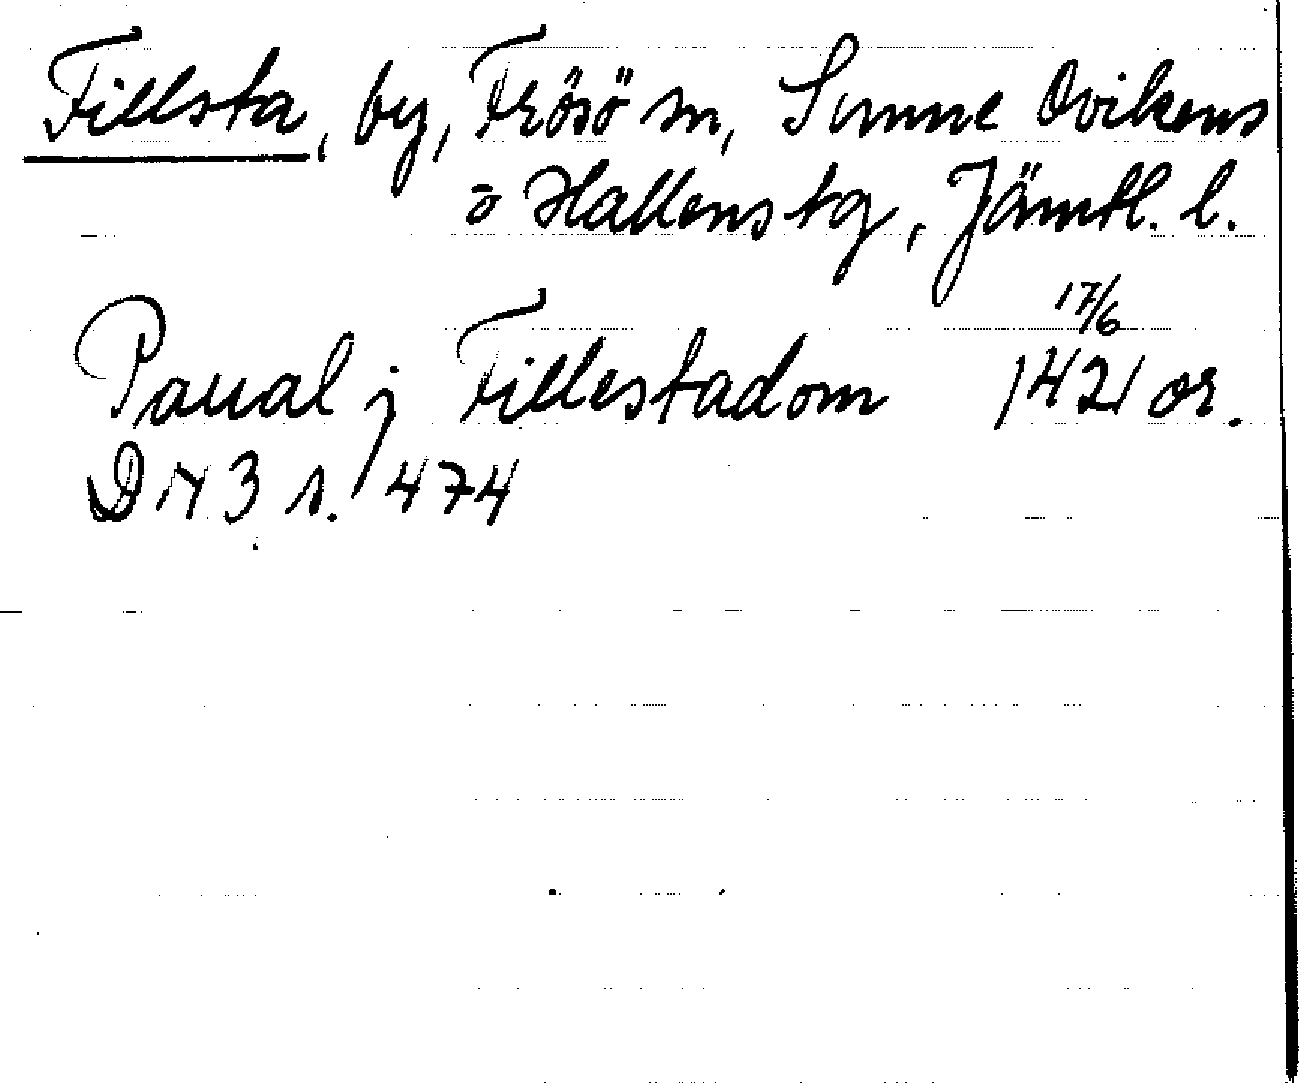 Fillsta, by, Frösö sn, Sunne Ovikens
o Hallens tg, Jämtl. l.
17/6
Paual j Fillestadom 1421 or.
DN 3 s. 474